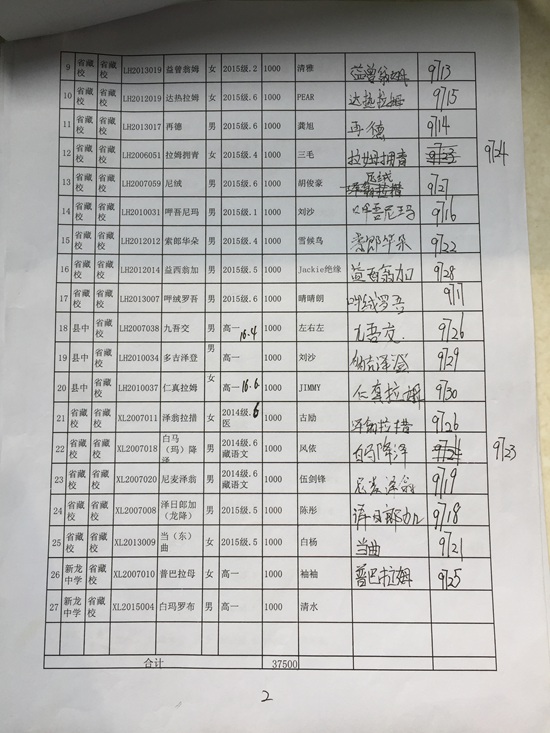 9 省藏校 省藏校 LH2013019 益曾翁姆 女 2015级.2 1000 清雅 益曾翁姆 9/13
10 省藏校 省藏校 LH2012019 达热拉姆 女 2015级.6 1000 PEAR 达热拉姆 9/15
11 省藏校 省藏校 LH2013017 再德 男 2015级.6 1000 龚旭 再德 9/14
12 省藏校 省藏校 LH2006051 拉姆拥青 女 2015级.4 1000 三毛 拉姆拥青 9/23 9/24
13 省藏校 省藏校 LH2007059 尼绒 男 2015级.6 1000 胡俊豪 尼绒 9/27
14 省藏校 省藏校 LH2010031 呷吾尼玛 男 2015级.1 1000 刘沙 呷吾尼玛 9/16
15 省藏校 省藏校 LH2012012 索郎华朵 男 2015级.4 1000 雪候鸟 索郎华朵 9/22
16 省藏校 省藏校 LH2012014 益西翁加 男 2015级.5 1000 Jackie绝缘 益西翁加 9/28
17 省藏校 省藏校 LH2013007 呷绒罗吾 男 2015级.6 1000 晴晴朗 呷绒罗吾 9/17
18 县中 省藏校 LH2007038 九吾交 男 高一 16.4 1000 左右左 九吾交 9/26
19 县中 省藏校 LH2010034 多吉泽登 男 高一 1000 刘沙 泽登 9/29
20 县中 省藏校 LH2010037 仁真拉姆 女 高一 16.6 1000 JIMMY 仁真拉姆 9/30
21 省藏校 省藏校 XL2007011 泽翁拉措 女 2014级.6医 1000 古励 泽翁拉措 9/26
22 省藏校 省藏校 XL2007018 白马（玛）降泽 男 2014级.6藏语文 1000 风依 白玛降泽 9/24 9/23
23 省藏校 省藏校 XL2007020 尼麦泽翁 男 2014级.6藏语文 1000 伍剑锋 尼麦泽翁 9/19
24 省藏校 省藏校 XL2007008 泽日郎加（龙降） 男 2015级.5 1000 陈彤 泽日郎加 9/18
25 省藏校 省藏校 XL2013009 当（东）曲 女 2015级.5 1000 白杨 当曲 9/21
26 新龙中学 省藏校 XL2007010 普巴拉母 女 高一 1000 袖袖 普巴拉姆 9/25
27 新龙中学 省藏校 XL2015004 白玛罗布 男 高一 1000 清水
合计 37500
2